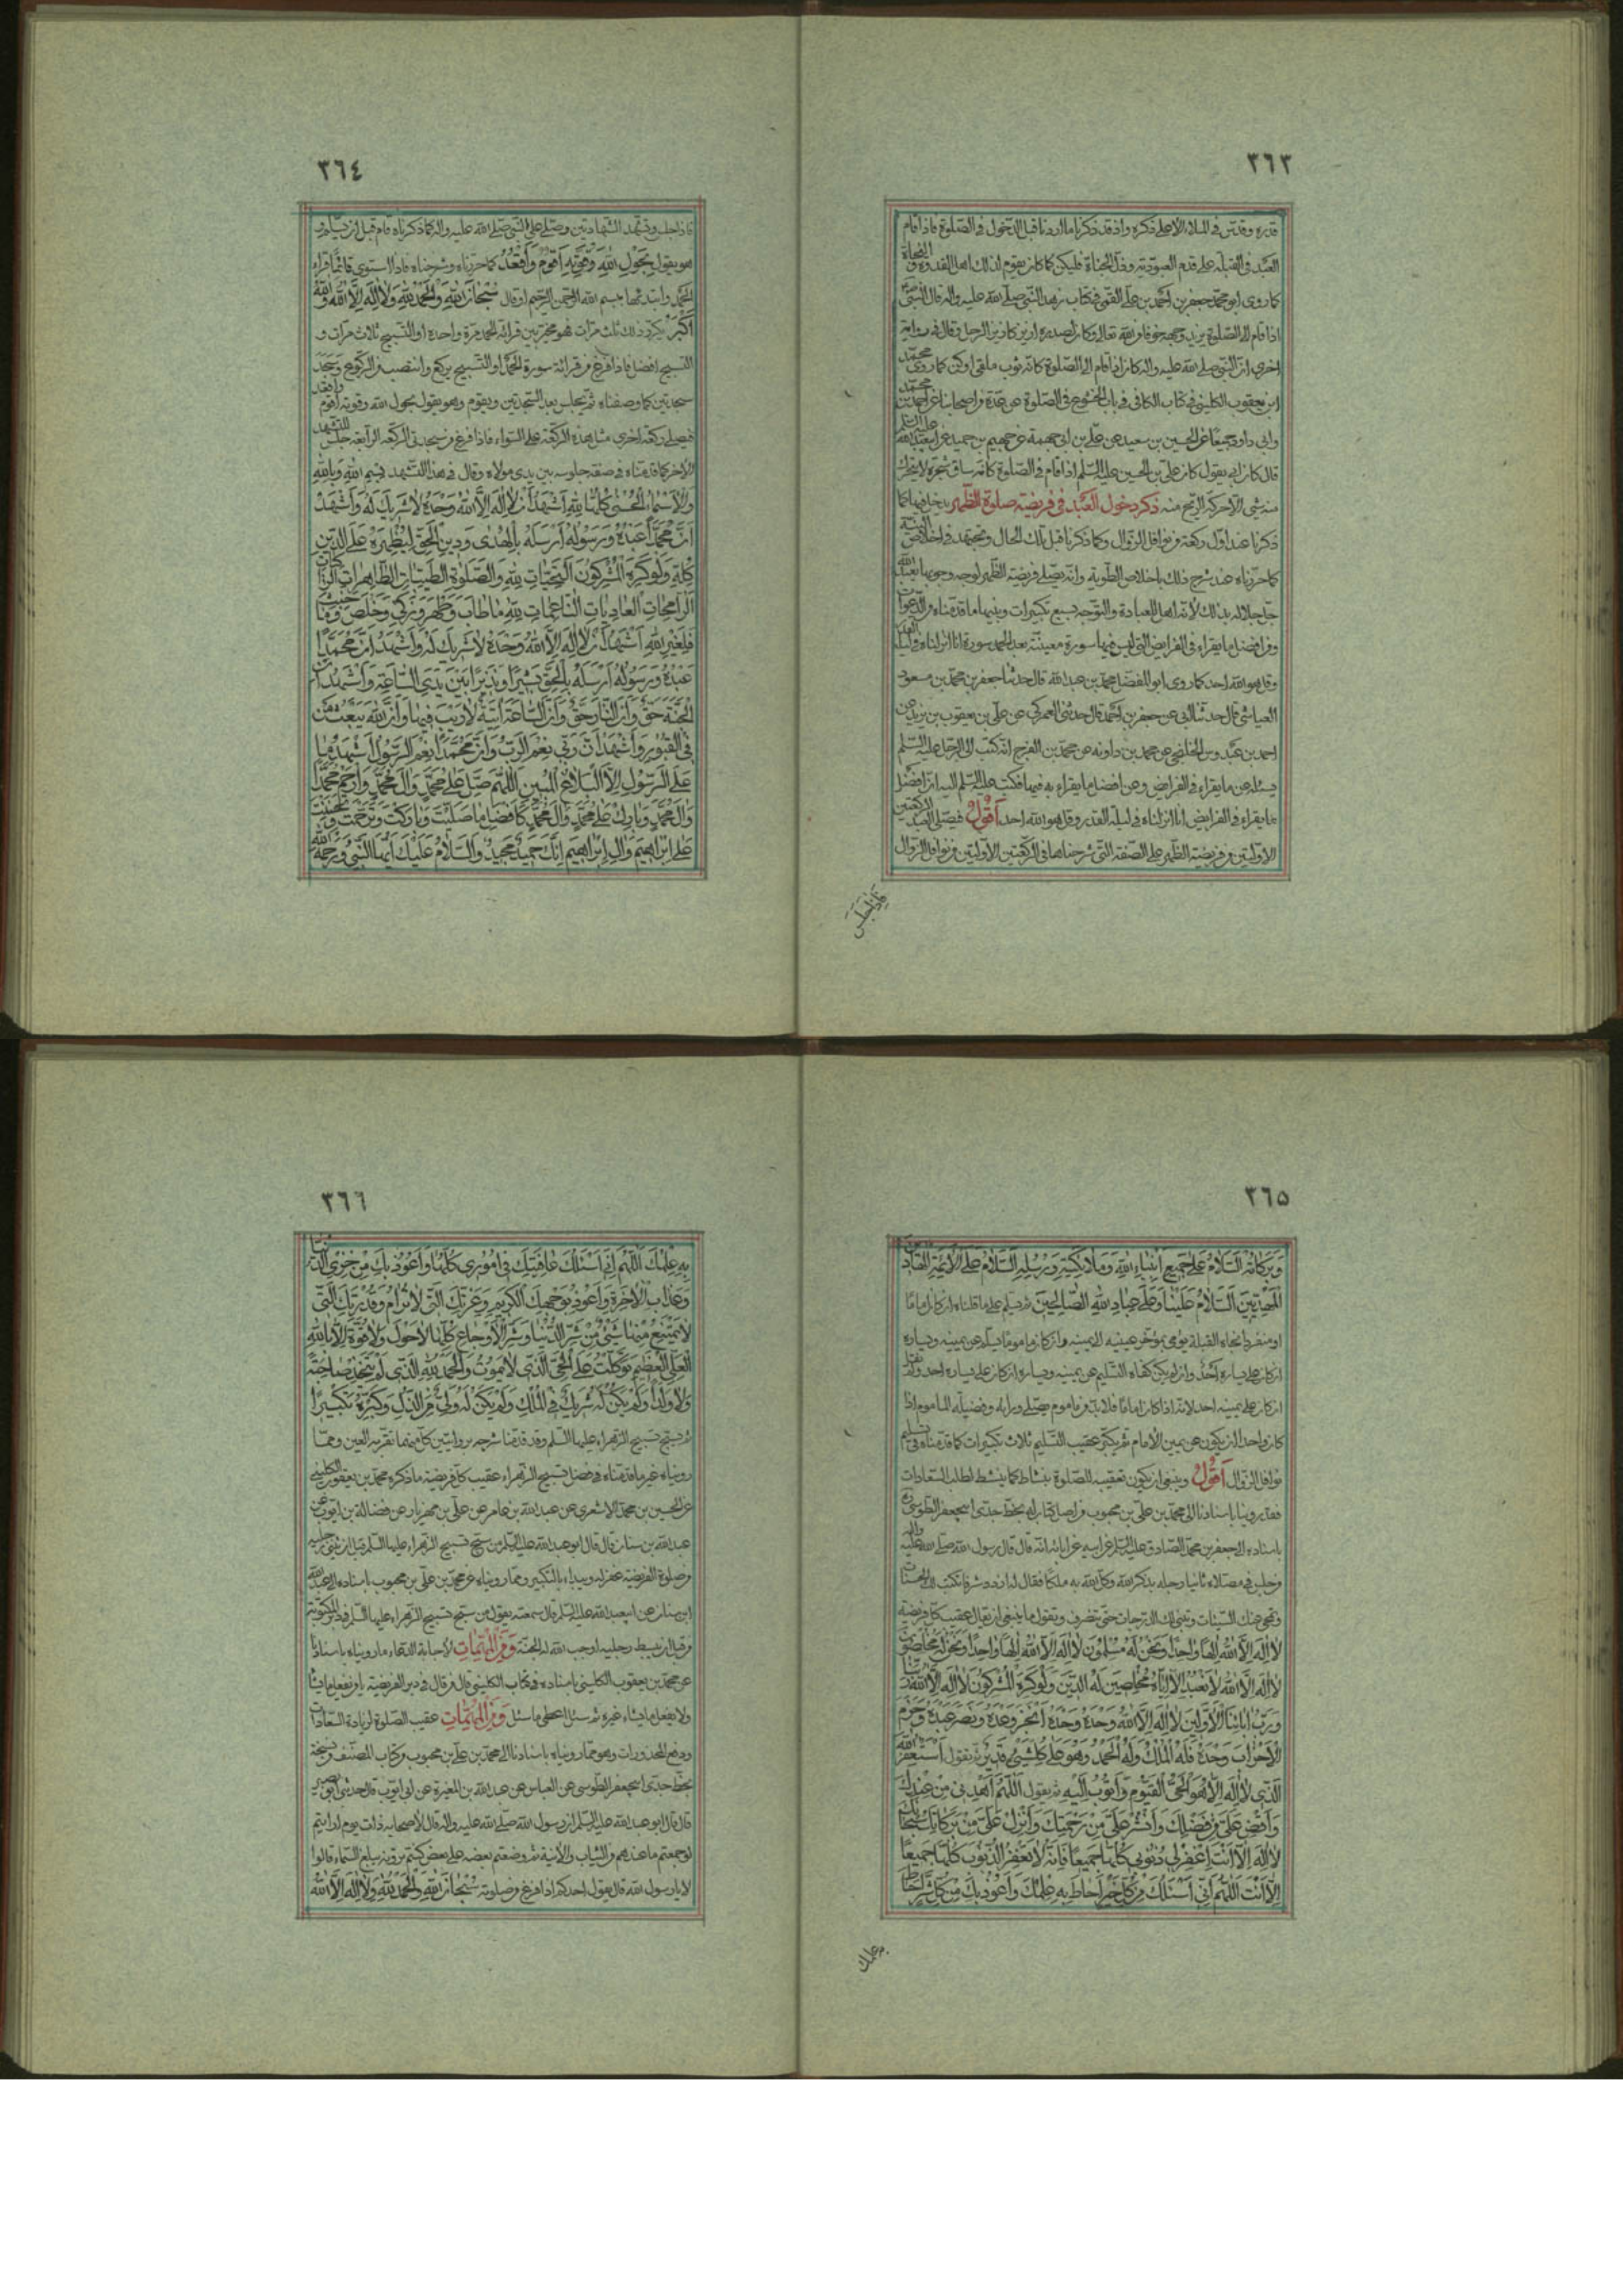 ٣٦٣
قدره وقدس فى الملاء الاعلى ذكره واذ قد ذكرنا ما اردنا قبل الدخول فى الصلوة فاذا قام
العبد فى القبلة على قدم العبودية وذل الجناة فليكن كما كان يقوم لذلك اهل القدوة والنجاة
كما روى ابو محمد جعفر بن احمد بن على القمى فى كتاب زهد النبى صلى الله عليه واله قال كان النبى
اذا قام الى الصلوة يربد وجهه خوفا من الله تعالى وكان لصدره ازيز كازيز المرجل وقال فى رواية
اخرى ان النبى صلى الله عليه واله كان اذا قام الى الصلوة كانه ثوب ملقى اقول كما روى محمد
ابن يعقوب الكلينى فى كتاب الكافى فى باب الخشوع فى الصلوة عن عدة من اصحابنا عن احمد بن محمد
وابى داود جميعا عن الحسين بن سعيد عن على بن ابى جهمة عن جهيم بن حميد عن ابيعبدالله عليه السلم
قال كان ابى يقول كان على بن الحسين عليه السلم اذا قام فى الصلوة كانه ساق شجرة لا يتحرك
منه شئ الا حركه الريح منه ذكر دخول العبد فى فريضة صلوة الظهر يدخل فيها كما
ذكرنا عند اول ركعة من نوافل الزوال وكما ذكرنا قبل تلك الحال ويجتهد فى اخلاص النية
كما حررناه عند شرح ذلك باخلاص الطوية وانه يصلى فريضة الظهر لوجه وجوبها يعبد الله
جل جلاله بذلك لانه اهل للعبادة والتوجه بسبع تكبيرات وبينها ما قدمناه من الدعوات
ومن افضل ما يقراء فى الفرايض التى ليس فيها سورة معينة بعد الحمد سورة انا انزلناه فى ليلة القدر
وقل هو الله احد كما روى ابو المفضل محمد بن عبد الله قال حدثنا جعفر بن محمد بن مسعود
العياشى قال حدثنا ابى عن جعفر بن احمد قال حدثنى العمركى عن على بن يعقوب بن يزيد عن
احمد بن عبدوس الخلنجى عن محمد بن دادويه عن محمد بن الفرج انه كتب الى الرجل عليه السلم
يسئله عن ما يقراء فى الفرايض وعن افضل ما يقراء به فيها فكتب عليه السلم اليه ان افضل
ما يقراء فى الفرايض انا انزلناه فى ليلة القدر وقل هو الله احد اقول فيصلى العبد الركعتين
الاولتين من فريضة الظهر على الصفة التى شرحناها فى الركعتين الاولتين من نوافل الزوال
فاذا جلس
٣٦٤
فاذا جلس وتشهد الشهادتين وصلى على النبى صلى الله عليه واله كما ذكرناه قام قبل ان يسلم و
هو يقول بِحَوْلِ اللهِ وَقُوَّتِهِ اَقُومُ وَاَقْعُدُ كما حررناه وشرحناه فاذا استوى قائما قراء
الحمد وابتدئها ببسم الله الرحمن الرحيم او قال سُبْحانَ اللهِ وَالْحَمْدُ لِلهِ وَلا اِلهَ اِلَّا اللهُ وَاللهُ
اَكْبَرُ يكرر ذلك ثلث مرات فهو مخير بين قرائة الحمد مرة واحدة او التسبيح ثلاث مرات و
التسبيح افضل فاذا فرغ من قرائة سورة الحمد او التسبيح يركع وانتصب من الركوع وسجد
سجدتين كما وصفناه ثم يجلس بعد السجدتين ويقوم وهو يقول بحول الله وقوته اقوم واقعد
فيصلى ركعة اخرى مثل هذه الركعة على السواء فاذا فرغ من سجدتى الركعة الرابعة جلس للتشهد
الاخر كما قدمناه فى صفة جلوسه بين يدى مولاه وقال فى هذا التشهد بِسْمِ اللهِ وَبِاللهِ
وَالْاَسْماءُ الْحُسْنى كُلُّها لِلهِ اَشْهَدُ اَنْ لا اِلهَ اِلَّا اللهُ وَحْدَهُ لا شَرِيكَ لَهُ وَاَشْهَدُ
اَنَّ مُحَمَّداً عَبْدُهُ وَرَسُولُهُ اَرْسَلَهُ بِالْهُدى وَدِينِ الْحَقِّ لِيُظْهِرَهُ عَلَى الدِّينِ
كُلِّهِ وَلَوْ كَرِهَ الْمُشْرِكُونَ اَلتَّحِيّاتُ لِلهِ وَالصَّلَواتُ الطَّيِّباتُ الطّاهِراتُ الزّاكِياتُ
الرّائِحاتُ الْغادِياتُ النّاعِماتُ لِلهِ ما طابَ وَطَهُرَ وَزَكى وَخَلُصَ وَما خَبُثَ
فَلِغَيْرِ اللهِ اَشْهَدُ اَنْ لا اِلهَ اِلَّا اللهُ وَحْدَهُ لا شَرِيكَ لَهُ وَاَشْهَدُ اَنَّ مُحَمَّداً
عَبْدُهُ وَرَسُولُهُ اَرْسَلَهُ بِالْحَقِّ بَشِيراً وَنَذِيراً بَيْنَ يَدَىِ السّاعَةِ وَاَشْهَدُ اَنَّ
الْجَنَّةَ حَقٌّ وَاَنَّ النّارَ حَقٌّ وَاَنَّ السّاعَةَ آتِيَةٌ لا رَيْبَ فِيها وَاَنَّ اللهَ يَبْعَثُ مَنْ
فِى الْقُبُورِ وَاَشْهَدُ اَنَّ رَبِّى نِعْمَ الرَّبُّ وَاَنَّ مُحَمَّداً نِعْمَ الرَّسُولُ اَشْهَدُ ما
عَلَى الرَّسُولِ اِلَّا الْبَلاغُ الْمُبِينُ اَللّهُمَّ صَلِّ عَلى مُحَمَّدٍ وَآلِ مُحَمَّدٍ وَارْحَمْ مُحَمَّداً
وَآلَ مُحَمَّدٍ وَبارِكْ عَلى مُحَمَّدٍ وَآلِ مُحَمَّدٍ كَاَفْضَلِ ما صَلَّيْتَ وَبارَكْتَ وَتَرَحَّمْتَ وَتَحَنَّنْتَ
عَلى اِبْراهِيمَ وَآلِ اِبْراهِيمَ اِنَّكَ حَمِيدٌ مَجِيدٌ وَالسَّلامُ عَلَيْكَ اَيُّهَا النَّبِىُّ وَرَحْمَةُ اللهِ
٣٦٥
وَبَرَكاتُهُ اَلسَّلامُ عَلى جَمِيعِ اَنْبِياءِ اللهِ وَمَلائِكَتِهِ وَرُسُلِهِ اَلسَّلامُ عَلَى الْاَئِمَّةِ الْهادِينَ
الْمَهْدِيِّينَ اَلسَّلامُ عَلَيْنا وَعَلى عِبادِ اللهِ الصّالِحِينَ ثم يسلم على ما قلناه ان كان اماما
او منفردا تجاه القبلة يومى بمؤخر عينيه الى يمينه وان كان ماموما يسلم عن يمينه ويساره
ان كان على يساره احد وان لم يكن كفاه التسليم عن يمينه ويساره ان كان على يساره احد
ان كان على يمينه احد لانه اذا كان اماما فلا بد من ماموم يصلى ورائه وفضيلة الماموم اذا
كان واحدا ان يكون عن يمين الامام ثم يكبر عقيب التسليم ثلاث تكبيرات كما قدمناه فى تسليم
نوافل الزوال اقول وينبغى ان يكون تعقيبه للصلوة بنشاط كما ينشط لطلب السعادات
فقد روينا باسنادنا الى محمد بن على بن محبوب من اصل كتاب له بخط جدى ابيجعفر الطوسى ره
باسناده الى جعفر بن محمد الصادق عليه السلم عن ابيه عن ابائه انه قال قال رسول الله صلى الله عليه واله
من جلس فى مصلاه ثانيا رجله يذكر الله وكل الله به ملكا فقال له ازدد شرفا تكتب لك الحسنات
وتمحى عنك السيئات وتبنى لك الدرجات حتى تنصرف وتقول ما ينبغى ان يقال عقيب كل فريضة
لا اِلهَ اِلَّا اللهُ اِلهاً واحِداً وَنَحْنُ لَهُ مُسْلِمُونَ لا اِلهَ اِلَّا اللهُ اِلهاً واحِداً وَنَحْنُ لَهُ مُخْلِصُونَ
لا اِلهَ اِلَّا اللهُ لا نَعْبُدُ اِلَّا اِيّاهُ مُخْلِصِينَ لَهُ الدِّينَ وَلَوْ كَرِهَ الْمُشْرِكُونَ لا اِلهَ اِلَّا اللهُ رَبُّنا
وَرَبُّ آبائِنَا الْاَوَّلِينَ لا اِلهَ اِلَّا اللهُ وَحْدَهُ وَحْدَهُ وَحْدَهُ اَنْجَزَ وَعْدَهُ وَنَصَرَ عَبْدَهُ وَهَزَمَ
الْاَحْزابَ وَحْدَهُ فَلَهُ الْمُلْكُ وَلَهُ الْحَمْدُ وَهُوَ عَلى كُلِّ شَىْءٍ قَدِيرٌ ثم يقول اَسْتَغْفِرُ اللهَ
الَّذِى لا اِلهَ اِلَّا هُوَ الْحَىُّ الْقَيُّومُ وَاَتُوبُ اِلَيْهِ ثم يقول اَللّهُمَّ اهْدِنِى مِنْ عِنْدِكَ
وَاَفِضْ عَلَىَّ مِنْ فَضْلِكَ وَانْشُرْ عَلَىَّ مِنْ رَحْمَتِكَ وَاَنْزِلْ عَلَىَّ مِنْ بَرَكاتِكَ سُبْحانَكَ
لا اِلهَ اِلَّا اَنْتَ اِغْفِرْ لِى ذُنُوبِى كُلَّها جَمِيعاً فَاِنَّهُ لا يَغْفِرُ الذُّنُوبَ كُلَّها جَمِيعاً
اِلَّا اَنْتَ اَللّهُمَّ اِنِّى اَسْئَلُكَ مِنْ كُلِّ خَيْرٍ اَحاطَ بِهِ عِلْمُكَ وَاَعُوذُ بِكَ مِنْ كُلِّ شَرٍّ اَحاطَ
به علمك
٣٦٦
بِهِ عِلْمُكَ اَللّهُمَّ اِنِّى اَسْئَلُكَ عافِيَتَكَ فِى اُمُورِى كُلِّها وَاَعُوذُ بِكَ مِنْ خِزْىِ الدُّنْيا
وَعَذابِ الْآخِرَةِ وَاَعُوذُ بِوَجْهِكَ الْكَرِيمِ وَعِزَّتِكَ الَّتِى لا تُرامُ وَقُدْرَتِكَ الَّتِى
لا يَمْتَنِعُ مِنْها شَىْءٌ مِنْ شَرِّ الدُّنْيا وَشَرِّ الْاَوْجاعِ كُلِّها لا حَوْلَ وَلا قُوَّةَ اِلَّا بِاللهِ
الْعَلِىِّ الْعَظِيمِ تَوَكَّلْتُ عَلَى الْحَىِّ الَّذِى لا يَمُوتُ وَالْحَمْدُ لِلهِ الَّذِى لَمْ يَتَّخِذْ صاحِبَةً
وَلا وَلَداً وَلَمْ يَكُنْ لَهُ شَرِيكٌ فِى الْمُلْكِ وَلَمْ يَكُنْ لَهُ وَلِىٌّ مِنَ الذُّلِّ وَكَبِّرْهُ تَكْبِيراً
ثم تسبح تسبيح الزهراء عليها السلم وقد قدمنا شرحه بروايتين كل منهما تقر به العين ومما
رويناه غير ما قدمناه فى فضل تسبيح الزهراء عقيب كل فريضة ما ذكره محمد بن يعقوب الكلينى
عن الحسين بن محمد الاشعرى عن عبد الله بن عامر عن على بن مهزيار عن فضالة بن ايوب عن
عبد الله بن سنان قال قال ابو عبد الله عليه السلم من سبح تسبيح الزهراء عليها السلم قبل ان يثنى رجليه
من صلوة الفريضة غفر له ويبداء بالتكبير ومما رويناه عن محمد بن على بن محبوب باسناده الى عبد الله
ابن سنان عن ابيعبد الله عليه السلم قال سمعته يقول من سبح تسبيح الزهراء عليها السلم فى دبر المكتوبة
من قبل ان يبسط رجليه اوجب الله له الجنة وَمِنَ الْمُهِمّاتِ لاجابة الدعاء ما رويناه باسنادنا
عن محمد بن يعقوب الكلينى باسناده فى كتاب الكلينى قال من قال فى دبر الفريضة يا من يفعل ما يشاء
ولا يفعل ما يشاء غيره ثم سئل اعطى ما سئل وَمِنَ الْمُهِمّاتِ عقيب الصلوة لزيادة السعادات
ودفع المحذورات وهو مما رويناه باسنادنا الى محمد بن على بن محبوب من كتاب المصنف ونسخة
بخط جدى ابيجعفر الطوسى عن العباس عن عبد الله بن المغيرة عن ابى ايوب قال حدثنى ابو بصير
قال قال ابو عبد الله عليه السلم ان رسول الله صلى الله عليه واله قال لاصحابه ذات يوم ارايتم
لو جمعتم ما عندكم من الثياب والانية ثم وضعتم بعضه على بعض كنتم ترونه يبلغ السماء قالوا
لا يا رسول الله قال يقول احدكم اذا فرغ من صلوته سُبْحانَ اللهِ وَالْحَمْدُ لِلهِ وَلا اِلهَ اِلَّا اللهُ